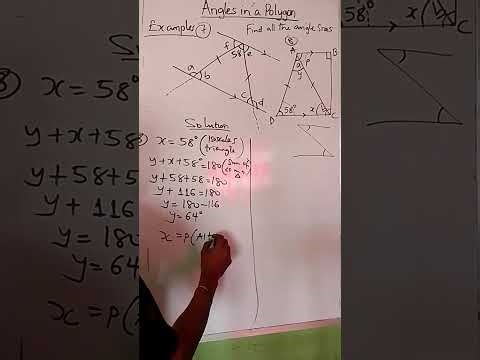 Angles in a Polygon
Examples 7
Find all the angle sizes
f
58°
e
a
b
c
d
8
A
B
a
p
y
58°
x
D
C
x
C
Solution
8) x = 58° (Isosceles triangle)
y + x + 58° = 180 (Sum of
y + 58 + 58 = 180
y + 116 = 180
y = 180 - 116
y = 64°
x = p (Alt
8) x = 58°
y + x + 58
y + 58
y + 116
y = 180
y = 64
x = p(